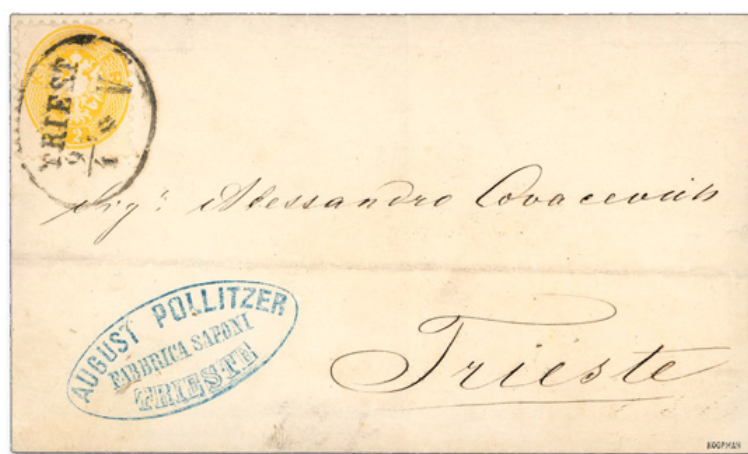 TRIEST
Sig.r Alessandro Covacevich
AUGUST POLLITZER
FABBRICA SAPONI
TRIESTE
Trieste
KOOPMAN